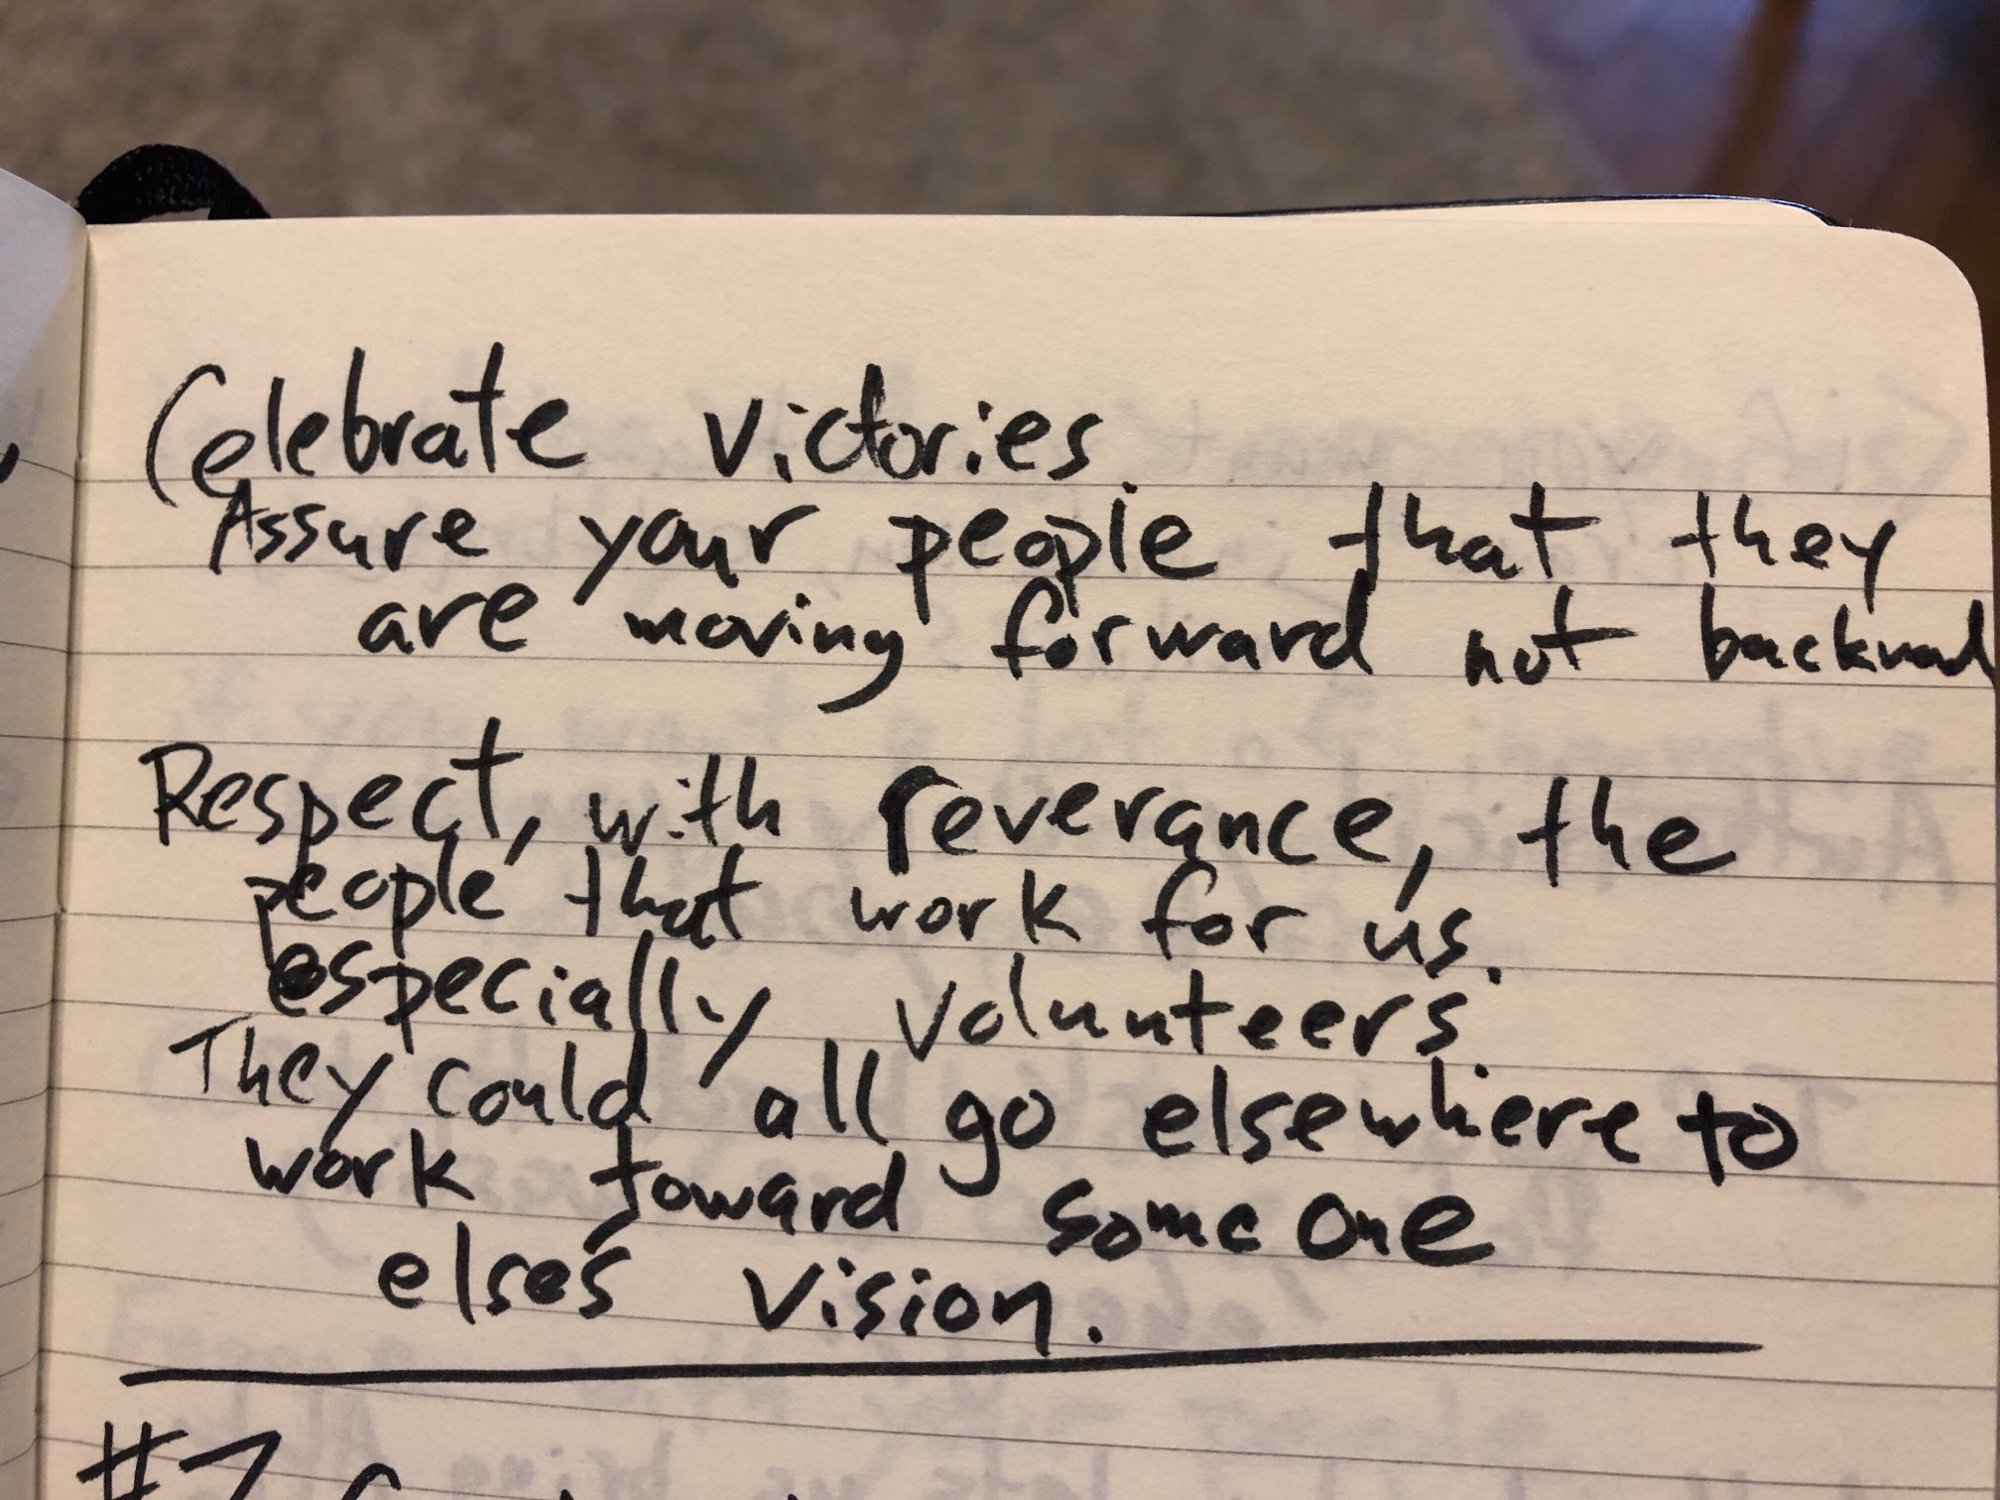 Celebrate victories.
Assure your people that they
are moving forward not backward
Respect, with reverance, the
people that work for us.
especially volunteers.
They could all go elsewhere to
work toward someone
else's vision.
#7